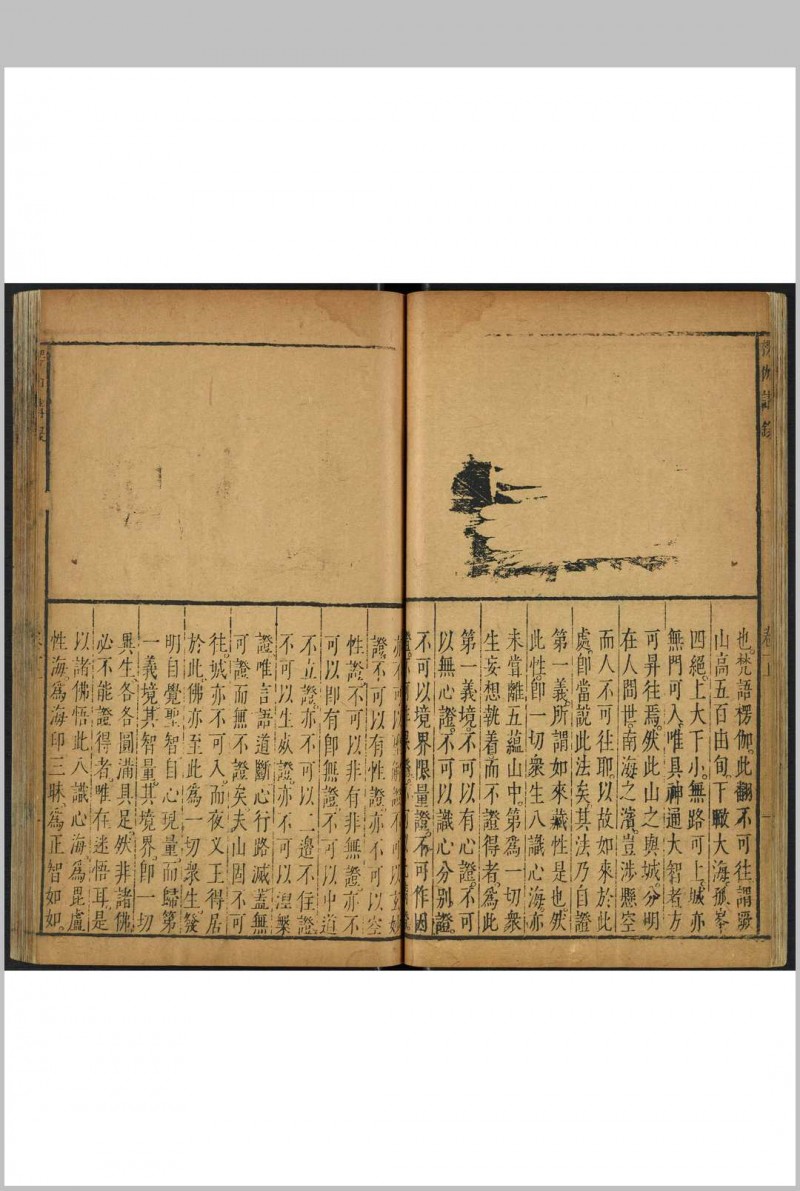 也梵語楞伽此翻不可往謂嚴
山高五百由旬下瞰大海孤峯
四絕上大下小無路可上城亦
無門可入唯具神通大智者方
可昇往焉然此山之與城分明
在人間世南海之濱豈涉懸空
而人不可往耶以故如來於此
處即當說此法矣其法乃自證
第一義所謂如來藏性是也然
此性即一切衆生八識心海亦
未嘗離五蘊山中第爲一切衆
生妄想執着而不證得者爲此
第一義境不可以有心證不可
以無心證不可以識心分別證
不可以境界限量證不可作因
證不可以有性證亦不可以空
性證不可以非有非無證亦不
可以即有即無證不可以中道
不立證亦不可以二邊不住證
不可以生死證亦不可以涅槃
證唯言語道斷心行路滅蓋無
可證而無不證矣夫山固不可
往城亦不可入而夜叉王得居
於此佛亦至此爲一切衆生發
明自覺聖智自心現量而歸第
一義境其智量其境界即一切
異生各各圓滿具足然非諸佛
必不能證得者唯在迷悟耳是
以諸佛悟此八識心海爲毘盧
性海爲海印三昧爲正智如如